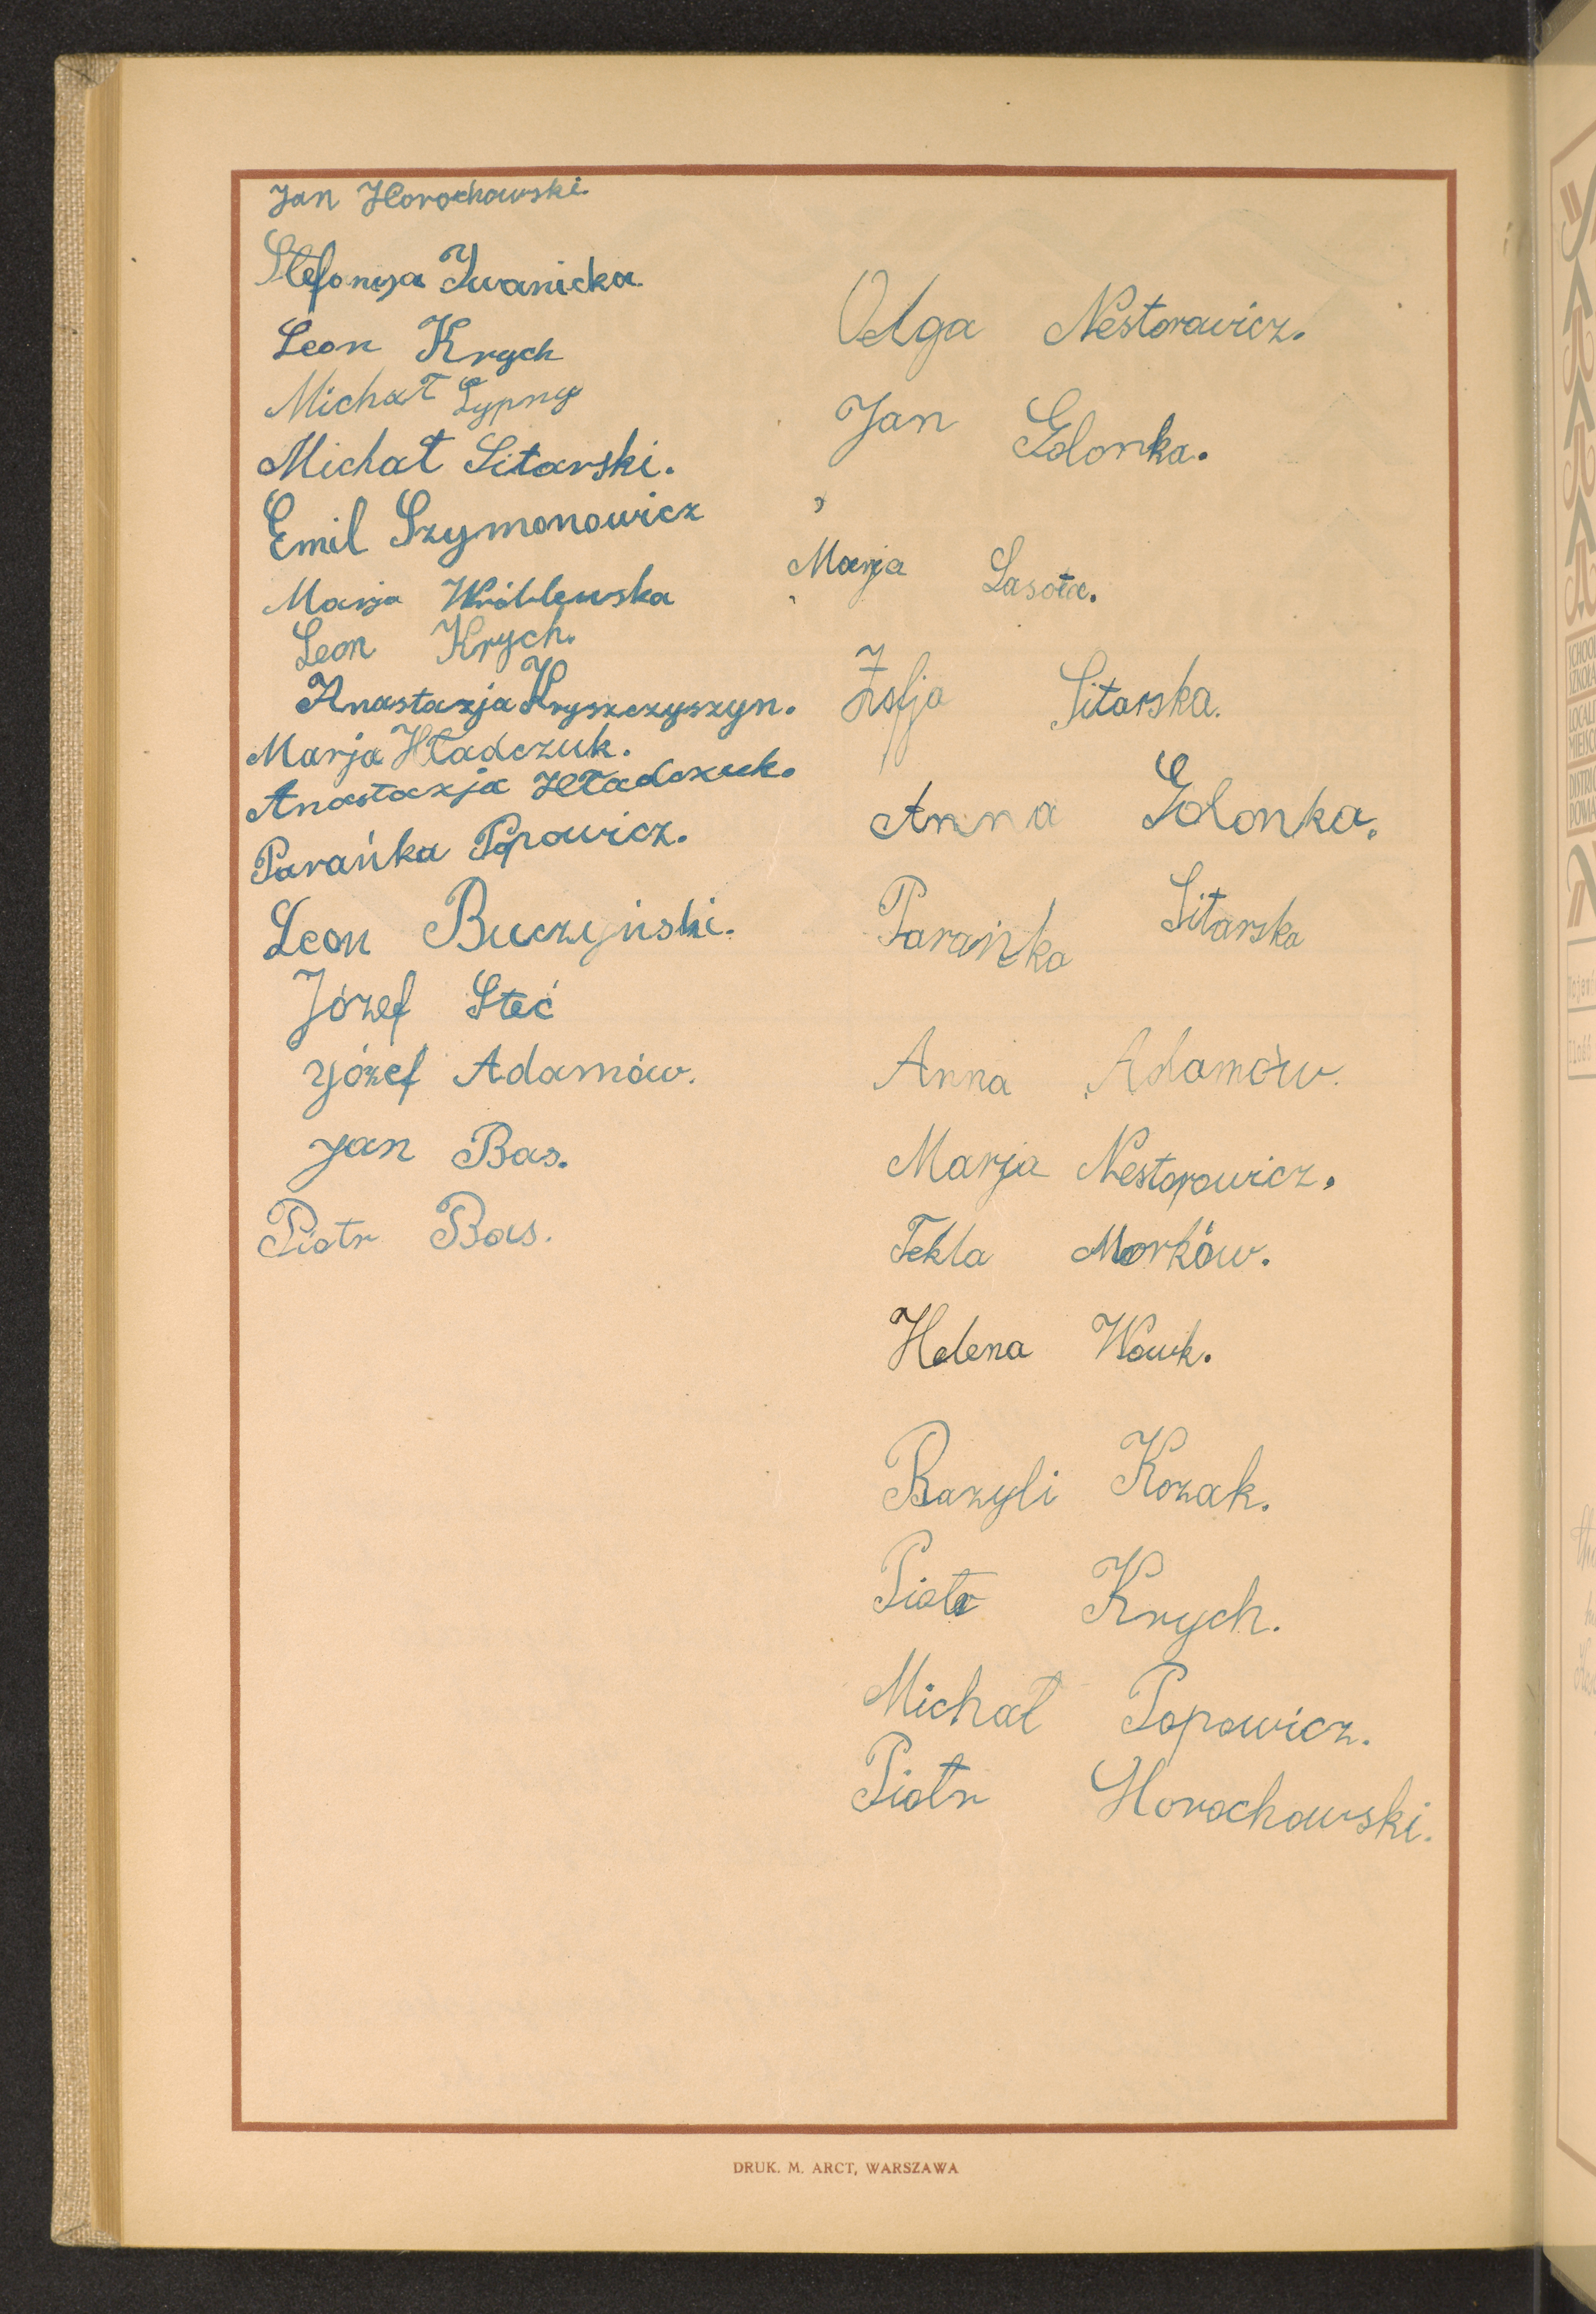 Jan Horochowski.
Stefanja Iwanicka.
Leon Krych
Michał Lypny
Michał Sitarski.
Emil Szymonowicz
Marja Wróblewska
Leon Krych.
Anastazja Kryszczyszyn.
Marja Hładczuk.
Anastazja Hładczuk.
Parańka Popowicz.
Leon Buczyński.
Józef Steć
Józef Adamów.
Jan Bas.
Piotr Bas.
Olga Nestorowicz.
Jan Golonka.
Marja Lasota.
Zofja Sitarska.
Anna Golonka.
Parańka Sitarska
Anna Adamów.
Marja Nestorowicz.
Tekla Morków.
Helena Wowk.
Bazyli Kozak.
Piotr Krych.
Michał Popowicz.
Piotr Horochowski.
DRUK. M. ARCT, WARSZAWA